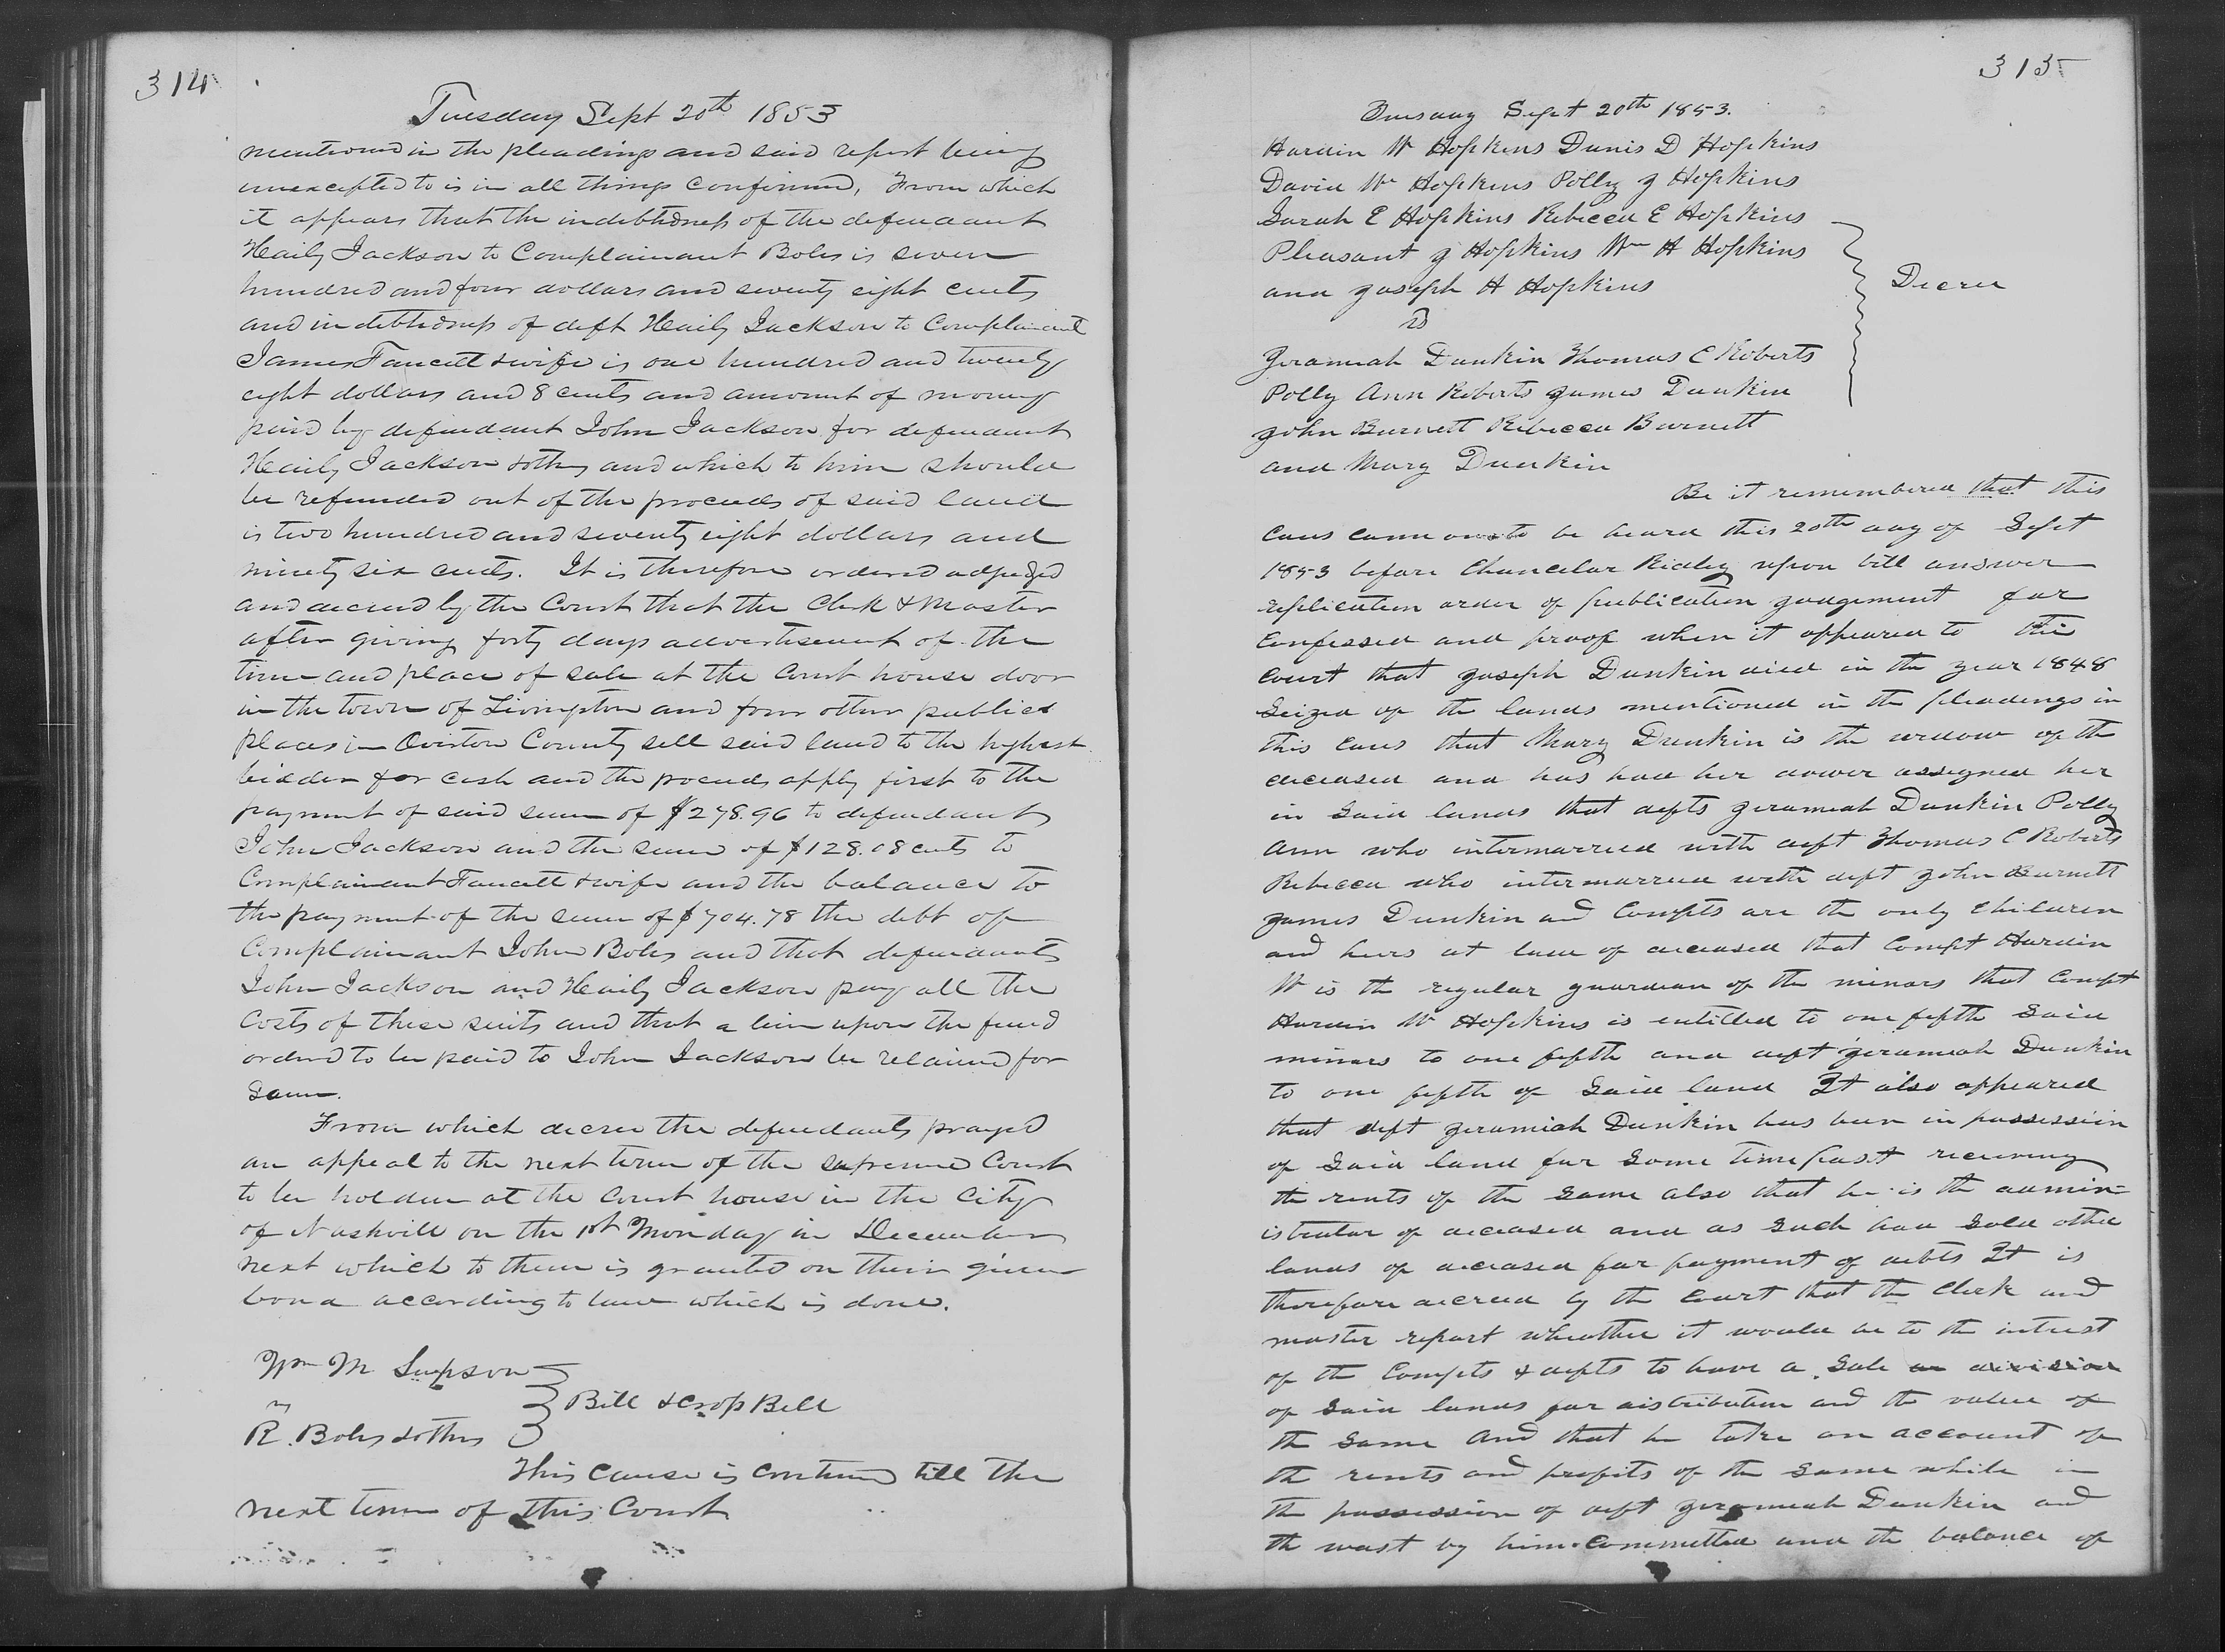 314
Tuesday Sept 20th 1853
mentioned in the pleadings and said report being
unexcepted to is in all things confirmed, From which
it appears that the indebtedness of the defendant
Haily Jackson to Complainant Boles is seven
hundred and four dollars and seventy eight cents
and indebtedness of deft Haily Jackson to Complainant
James Faucett & wife is one hundred and twenty
eight dollars and 8 cents and amount of money
paid by defendant John Jackson for defendant
Haily Jackson & others and which to him should
be refunded out of the proceeds of said land
is two hundred and seventy eight dollars and
ninety six cents. It is therefore ordered adjudged
and decreed by the Court that the Clerk & Master
after giving forty days advertisement of the
time and place of sale at the Court house door
in the town of Livingston and four other publick
places in Overton County sell said land to the highest
bidder for cash and the proceeds apply first to the
payment of said sum of $278.96 to defendant
John Jackson and the sum of $128.08 cents to
Complainant Faucett & wife and the balance to
the payment of the sum of $704.78 the debt of
Complainant John Boles and that defendants
John Jackson and Haily Jackson pay all the
Costs of these suits and that a lien upon the fund
ordered to be paid to John Jackson be retained for
same.
From which decree the defendants prayed
an appeal to the next term of the Supreme Court
to be holden at the Court house in the City
of Nashvill on the 1st Monday in December
next which to them is granted on their given
bond according to law which is done.
Wm M Simpson
vs
R. Boles & others
Bill & Cross Bill
This cause is continued till the
next term of this Court
315
Tuesday Sept 20th 1853.
Hardin W Hopkins Dunis D Hopkins
David W Hopkins Polly J Hopkins
Sarah E Hopkins Rebecca E Hopkins
Pleasant J Hopkins Wm H Hopkins
and Joseph H Hopkins
Decree
vs
Jeramiah Dunkin Thomas C Roberts
Polly Ann Roberts James Dunkin
John Burnett Rebecca Burnett
and Mary Dunkin
Be it remembered that this
caus came on to be heard this 20th day of Sept
1853 before Chancelor Ridley upon bill answer
replication order of publication judgement for
confessed and proof when it appeared to the
court that Joseph Dunkin died in the year 1848
Seized of the lands mentioned in the pleadings in
this caus that Mary Dunkin is the widow of the
deceased and has had her dower assigned her
in said lands that defts Jeramiah Dunkin Polly
Ann who intermarried with deft Thomas C Roberts
Rebecca who intermarried with deft John Burnett
James Dunkin and Compts are the only children
and heirs at law of deceased that Compt Hardin
W is the regular guardian of the minors that Compt
Hardin W Hopkins is entitled to one fifth said
minors to one fifth and deft Jeramiah Dunkin
to one fifth of said land It also appeared
that deft Jeramiah Dunkin has been in possession
of said land for some time past receiving
the rents of the same also that he is the admin=
istrator of deceased and as such had sold other
lands of deceased for payment of debts It is
therefore decreed by the court that the Clerk and
master report wheather it would be to the intrest
of the Compts & defts to have a sale or division
of said lands for distribution and the value of
the same and that he take an account of
the rents and profits of the same while in
the possession of deft Jeramiah Dunkin and
the wast by him committed and the balance of